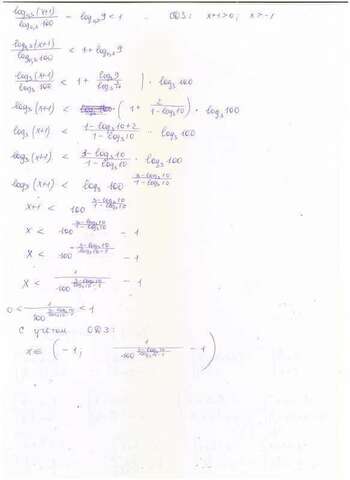 log₀,₃(x+1)/log₀,₃100 − log₀,₃9 < 1   ОДЗ: x+1>0; x>-1
log₀,₃(x+1)/log₀,₃100 < 1 + log₀,₃9
log₃(x+1)/log₃100 < 1 + log₃9/log₃ | · log₃100
log₃(x+1) < (1 + 2/(1−log₃10)) · log₃100
log₃(x+1) < (1−log₃10+2)/(1−log₃10) · log₃100
log₃(x+1) < (3−log₃10)/(1−log₃10) · log₃100
log₃(x+1) < log₃ 100^((3−log₃10)/(1−log₃10))
x+1 < 100^((3−log₃10)/(1−log₃10))
x < 100^((3−log₃10)/(1−log₃10)) − 1
x < 100^(−(3−log₃10)/(log₃10−1)) − 1
x < 1/100^((3−log₃10)/(log₃10−1)) − 1
0 < 1/100^((3−log₃10)/(log₃10−1)) < 1
С учетом ОДЗ:
x∈ (−1; 1/100^((3−log₃10)/(log₃10−1)) − 1)